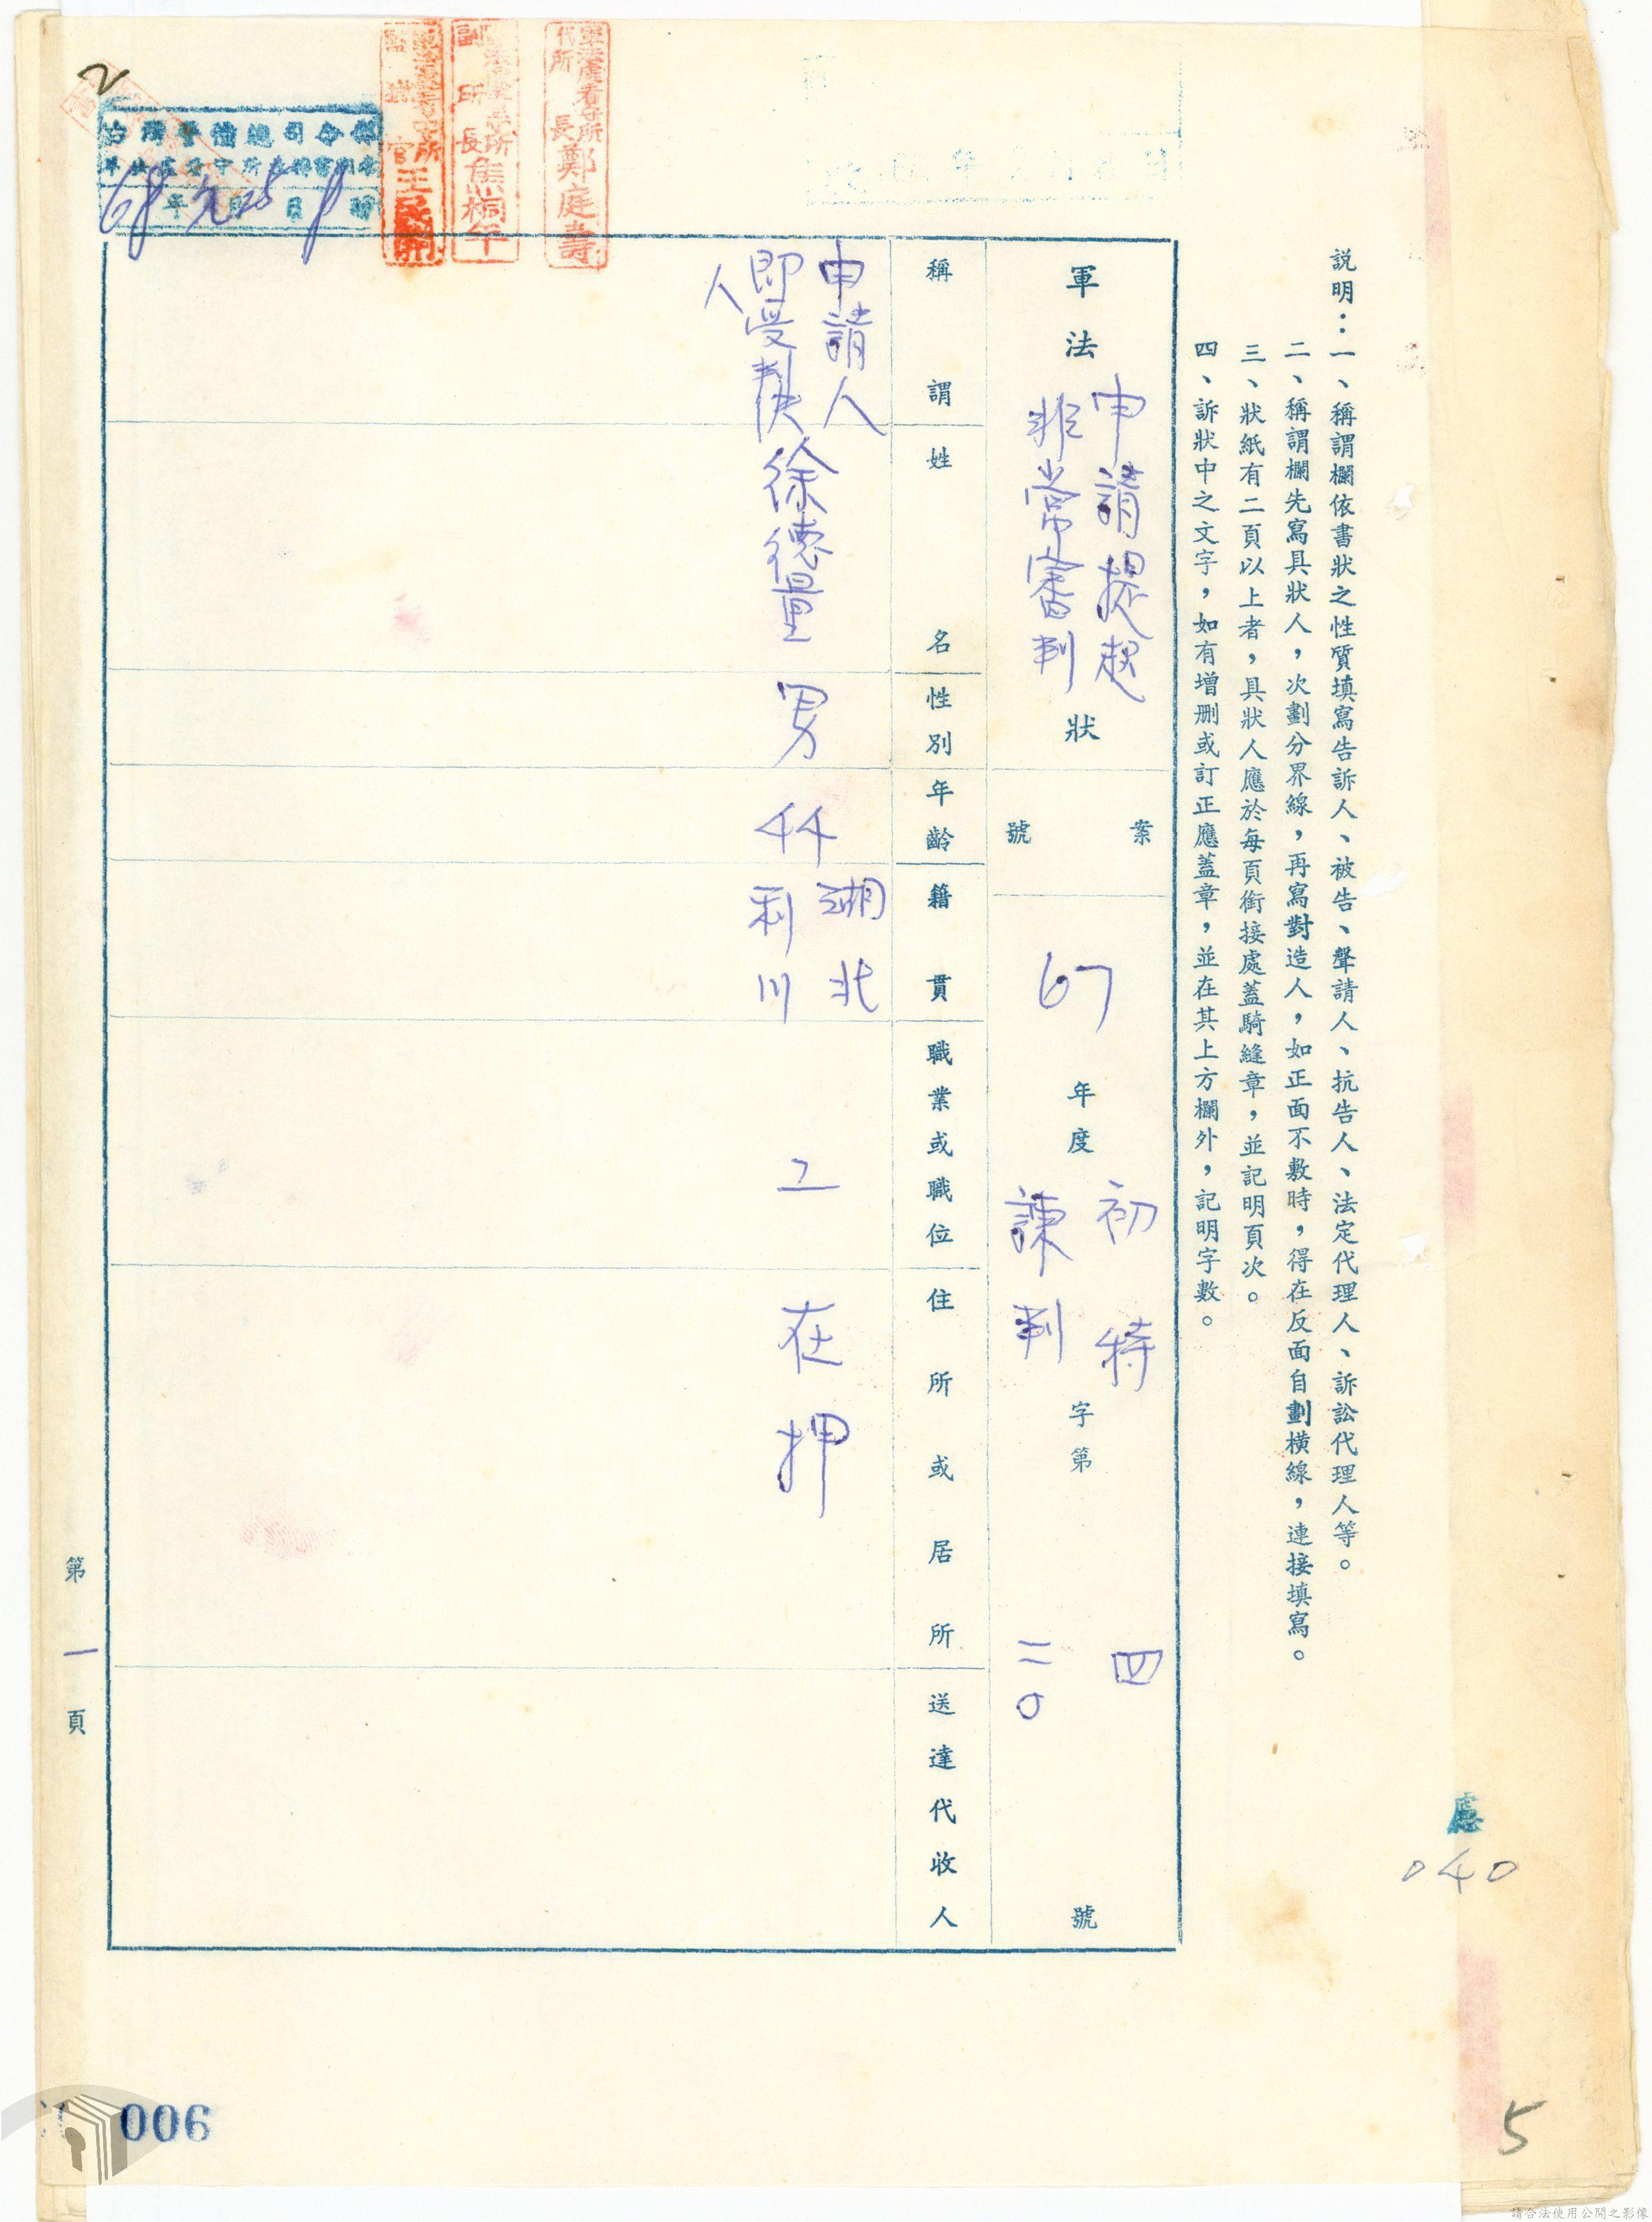 説明：一、稱謂欄依書狀之性質填寫告訴人、被告、聲請人、抗告人、法定代理人、訴訟代理人等。
二、稱謂欄先寫具狀人，次劃分界線，再寫對造人，如正面不敷時，得在反面自劃橫線，連接填寫。
三、狀紙有二頁以上者，具狀人應於每頁銜接處蓋騎縫章，並記明頁次。
四、訴狀中之文字，如有增刪或訂正應蓋章，並在其上方欄外，記明字數。
軍法 申請提起非常審判 狀
案號
67 年度 初特諫判 字第 四二〇 號
稱謂
姓名
性別
年齡
籍貫
職業或職位
住所或居所
送達代收人
申請人
即受判決人
徐德量
男
44
湖北
利川
工
在押
軍法處看守所
代所長 鄭庭壽
副所長 焦桐年
官 王
台灣警備總司令部
68年元月25日 時
2
第一頁
處
040
006
5
請合法使用公開之影像